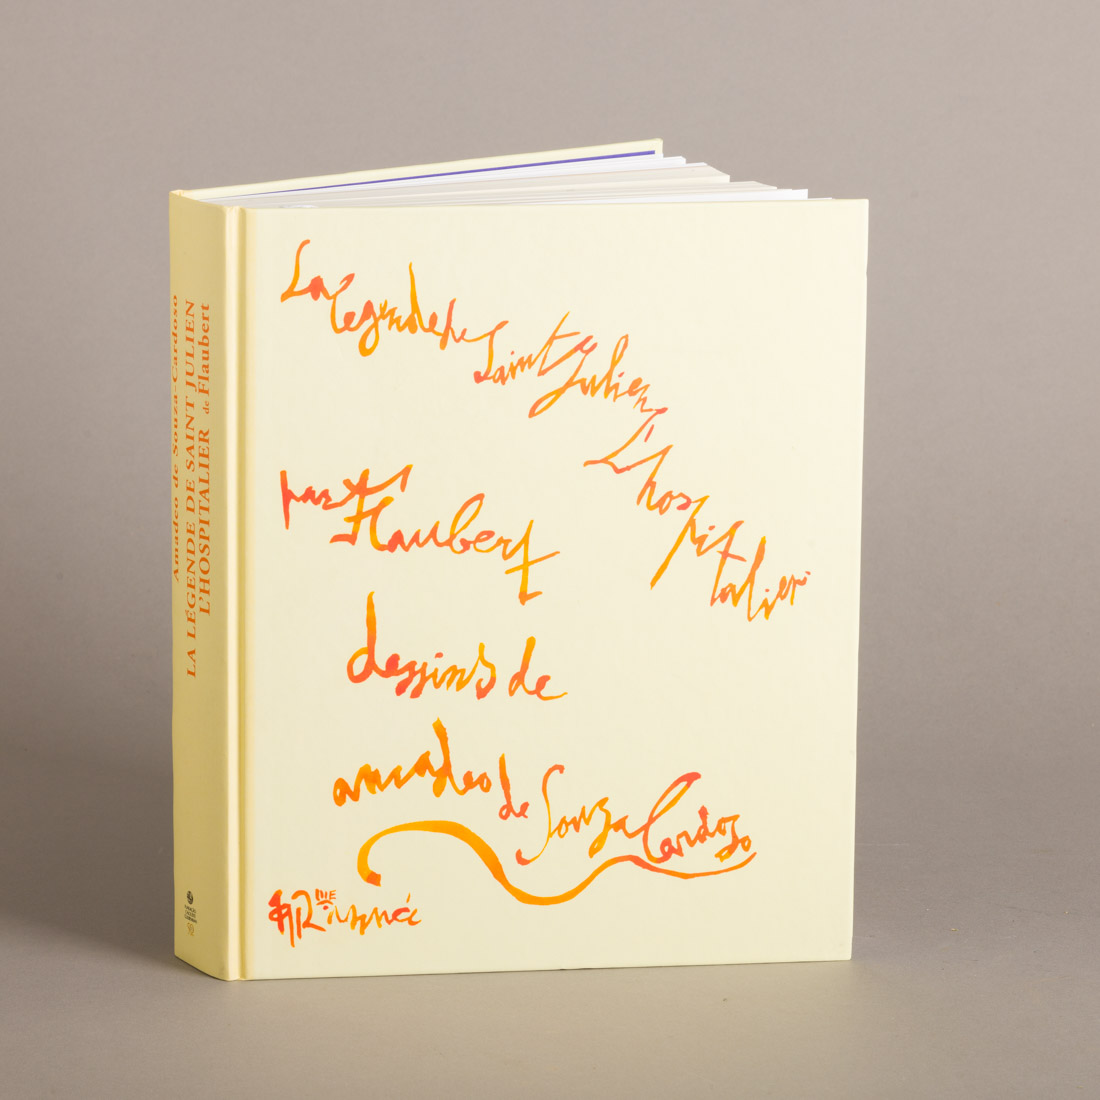 Amadeo de Souza-Cardoso
LA LÉGENDE DE SAINT JULIEN
L'HOSPITALIER de Flaubert
La légende de Saint Julien
L'hospitalier
par Flaubert
dessins de
amadeo de Souza Cardozo